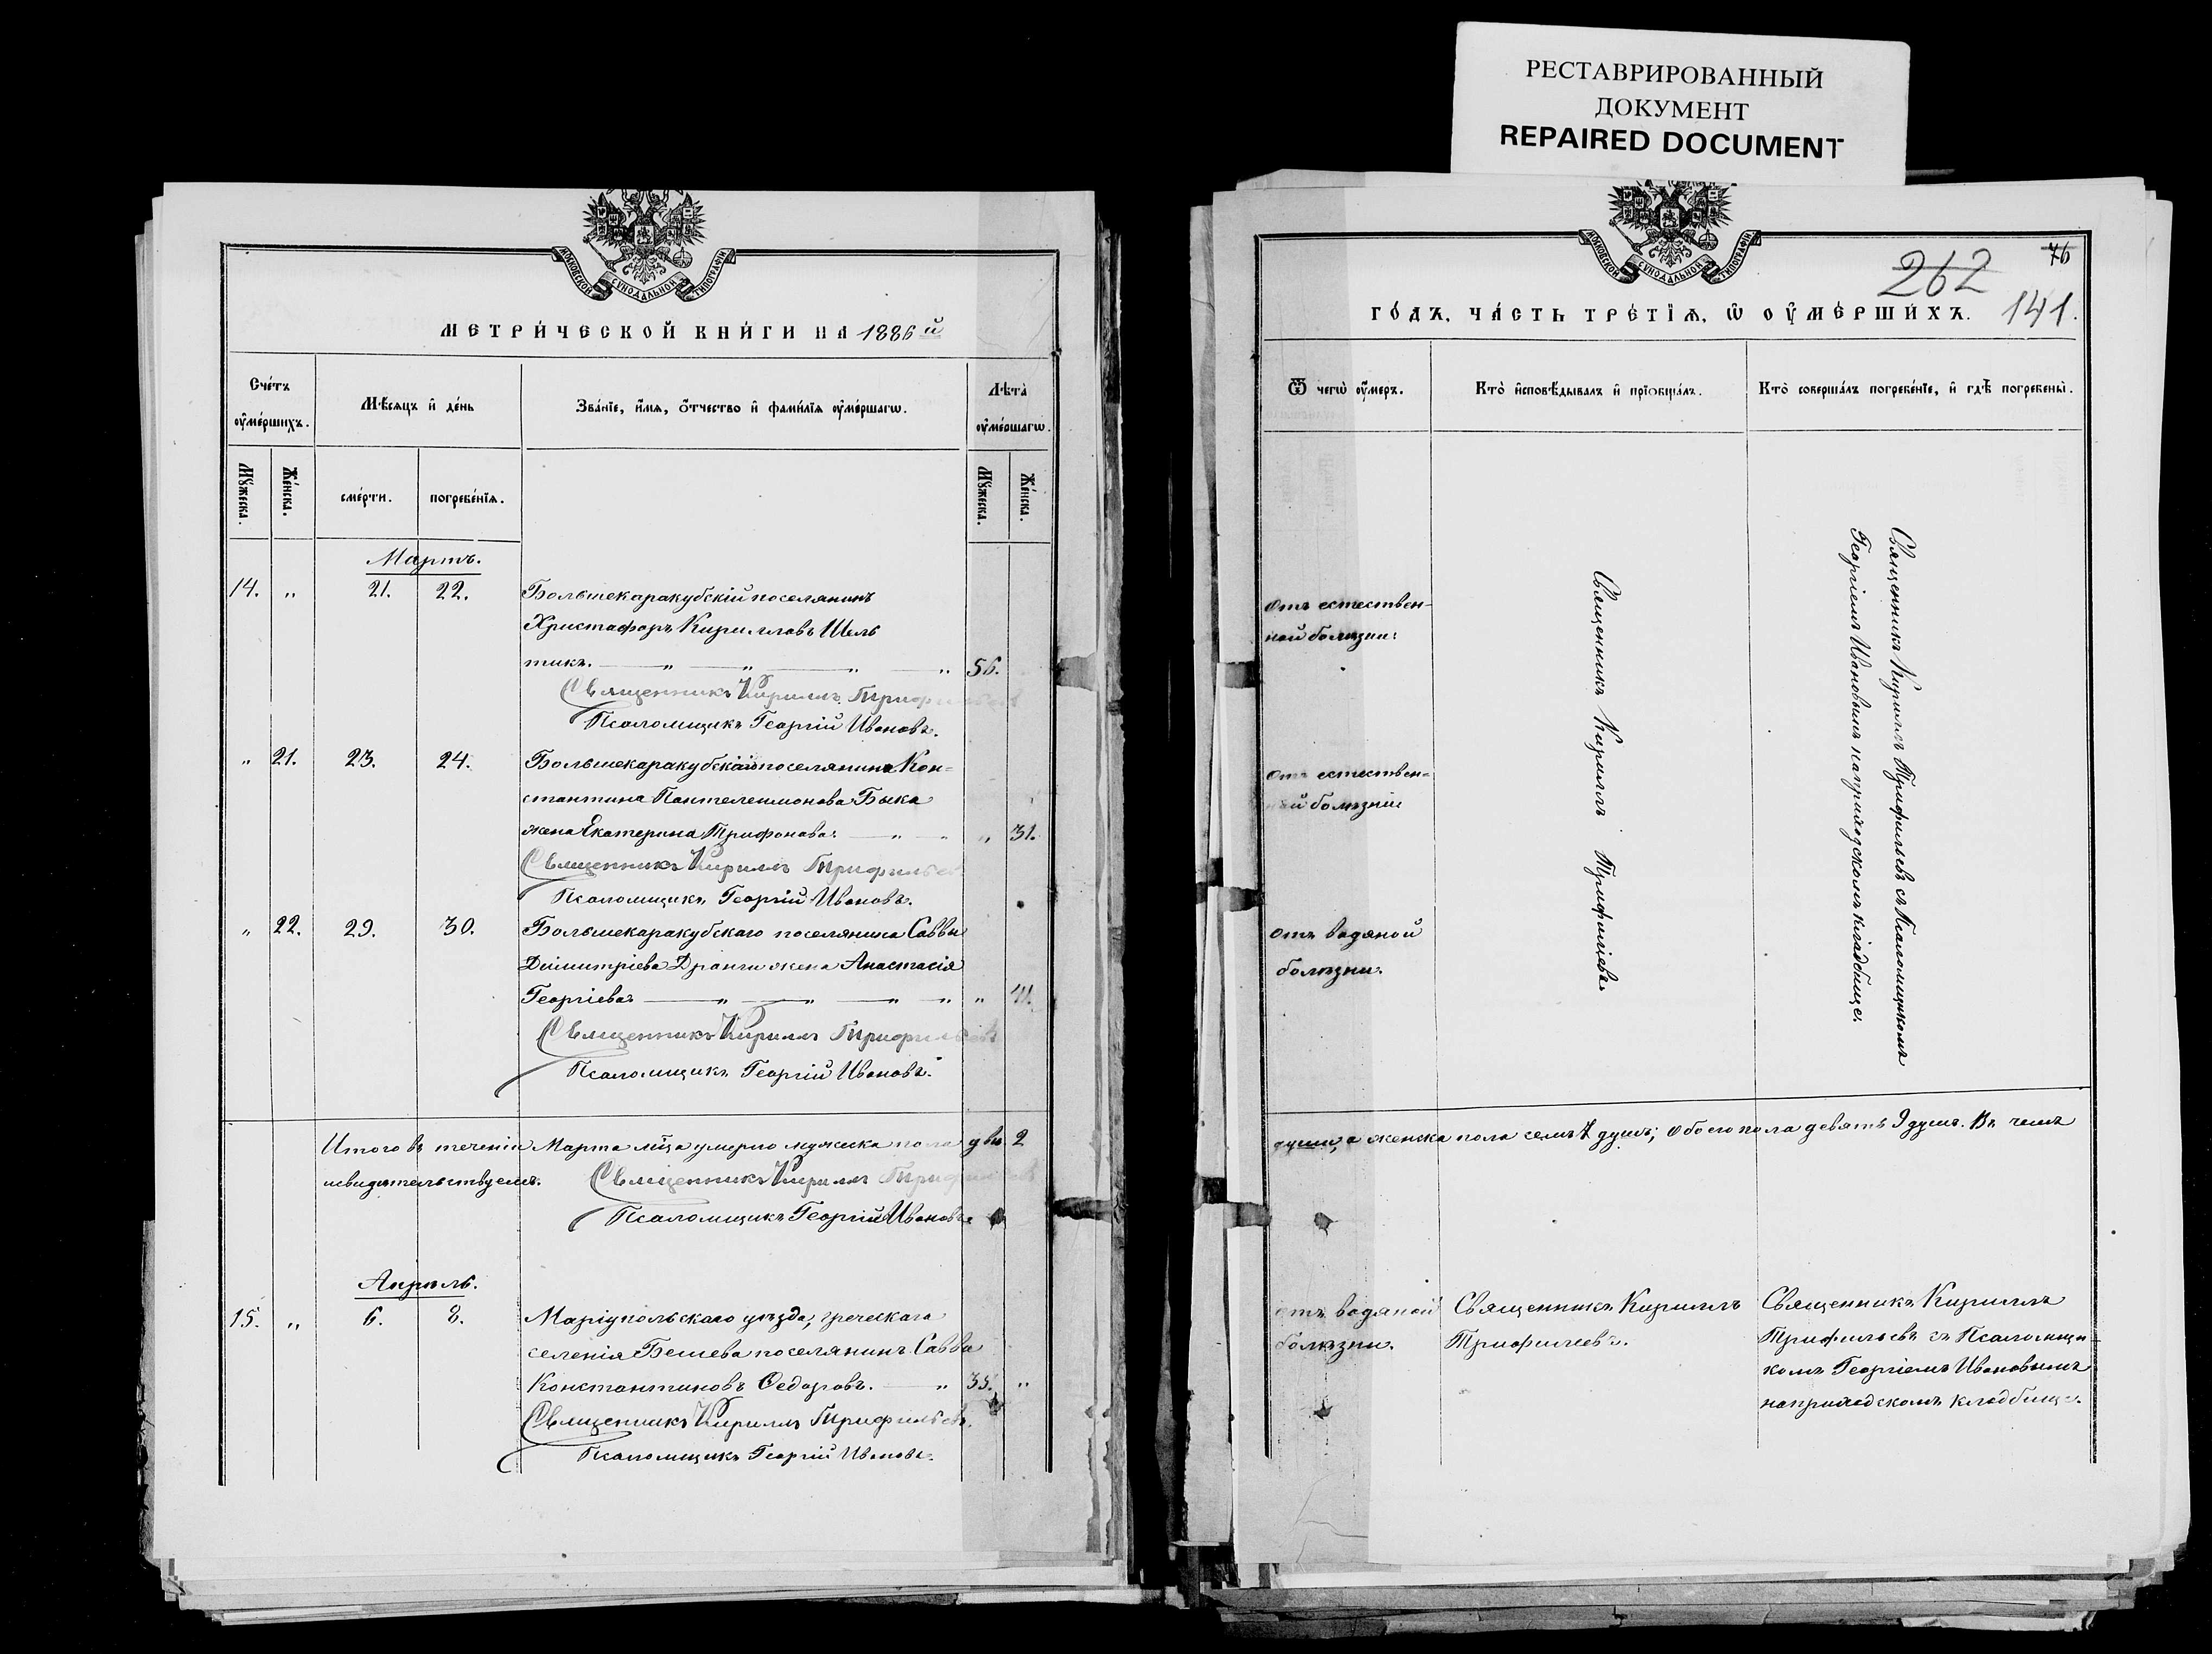 РЕСТАВРИРОВАННЫЙ
ДОКУМЕНТ
REPAIRED DOCUMENT
МОСКОВСКОЙ СУНОДАЛЬНОЙ ТИПОГРАФІИ
МЕТРИ́ЧЕСКОЙ КНИ́ГИ НА 1886й
Сче́тъ ᲂумéршихъ.
Мѣ́сяцъ и де́нь
Зва́нїе, и́мя, о́тчество и фами́лїя ᲂумéршагѡ.
Лѣта̀ ᲂумéршагѡ.
Мꙋ́жеска.
Же́нска.
сме́рти.
погребе́нїя.
Мꙋ́жеска.
Же́нска.
Мартъ.
14. „ 21. 22. Большекаракубскій поселянинъ
Христафоръ Кирилловъ Шель
тикъ. — „ — „ — „ — „ 56.
Священникъ Кириллъ Триф
Псаломщикъ Георгій Ивановъ.
„ 21. 23. 24. Большекаракубскаго поселянина Кон=
стантина Пантелеимонова Быка
жена Екатерина Трифонова. — „ „ „ 31.
Священникъ Кириллъ Трифильев
Псаломщикъ Георгій Ивановъ.
„ 22. 29. 30. Большекаракубскаго поселянина Саввы
Димитріева Дранги жена Анастасія
Георгіева — „ — „ — „ — „ „ 41.
Священникъ Кириллъ Трифильевъ
Псаломщикъ Георгій Ивановъ.
Итого въ теченіи Марта мца умерло мужеска пола два 2
свидѣтельствуемъ. Священникъ Кириллъ Трифильевъ
Псаломщикъ Георгій Ивановъ.
Апрѣль.
15. „ 6. 8. Маріупольскаго уѣзда, греческаго
селенія Бешева поселянинъ Савва
Константиновъ Ѳедоровъ. — „ 35. „
Священникъ Кириллъ Трифильевъ.
Псаломщикъ Георгій Ивановъ.
МОСКОВСКОЙ СУНОДАЛЬНОЙ ТИПОГРАФІИ
262
76
141.
ГО́ДЪ, ЧА́СТЬ ТРЕ́ТЇѦ, Ѡ ОУМЕ́РШИХЪ.
Ѿ чегѡ̀ ᲂу́меръ.
Кто̀ и҆сповѣ́дывалъ и҆ прїѡбща́лъ.
Кто̀ соверша́лъ погребе́нїе, и҆ гдѣ̀ погребены̀.
Отъ естествен-
ной болѣзни.
Отъ естествен=
ной болѣзни
Отъ водяной
болѣзни.
Священникъ Кириллъ Трифиліевъ.
Священникъ Кириллъ Трифильевъ съ Псаломщикомъ
Георгіемъ Ивановымъ на приходскомъ кладбищѣ.
души, а женска пола семь 7 душъ; обоего пола девять 9 душъ. Въ чемъ
отъ водяной
болѣзни.
Священникъ Кириллъ
Трифиліевъ.
Священникъ Кириллъ
Трифильевъ съ Псаломщи-
комъ Георгіемъ Ивановымъ
на приходскомъ кладбищѣ.